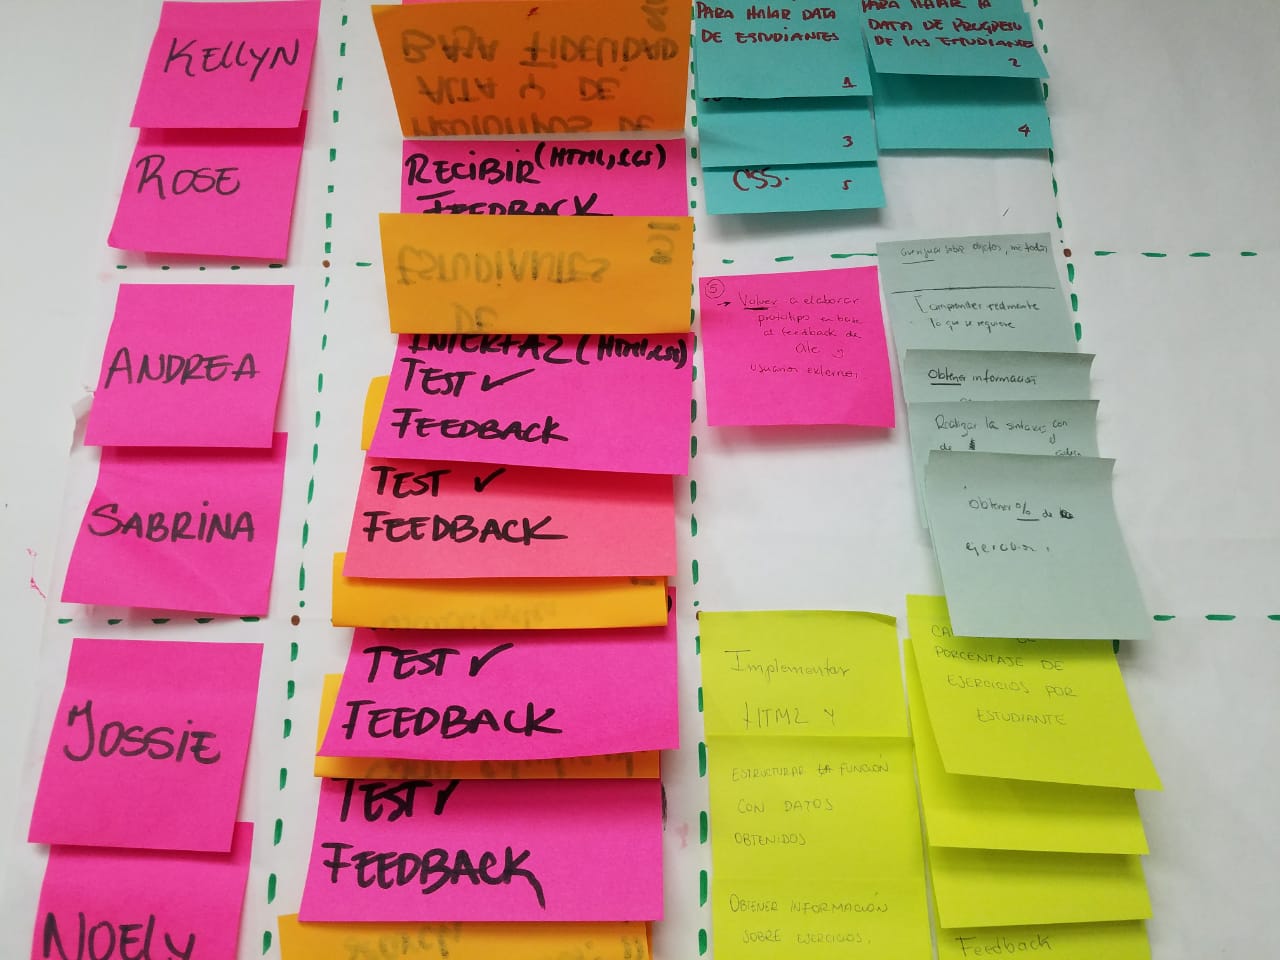 KELLYN
ROSE
ANDREA
SABRINA
JOSSIE
NOELY
BAJA FIDELIDAD
ALTA Y DE
PROTOTIPOS DE
RECIBIR (HTML, CSS)
FEEDBACK
ESTUDIANTES
DE
INTERFAZ (HTML, CSS)
TEST ✓
FEEDBACK
TEST ✓
FEEDBACK
TEST ✓
FEEDBACK
TEST ✓
FEEDBACK
PARA HALAR DATA
DE ESTUDIANTES
1
PARA HALAR LA
DATA DE PROGRESO
DE LAS ESTUDIANTES
2
3
4
CSS.
5
5
→ Volver a elaborar
prototipo en base
al feedback de
Ale y
usuarios externos
sobre objetos, metodos
Comprender realmente
lo que se requiere
Obtener información
Realizar la sintaxis con
de
obtener % de
ejercicios.
Implementar
HTML Y
ESTRUCTURAR LA FUNCIÓN
CON DATOS
OBTENIDOS
OBTENER INFORMACIÓN
SOBRE EJERCICIOS.
PORCENTAJE DE
EJERCICIOS POR
ESTUDIANTE
Feedback